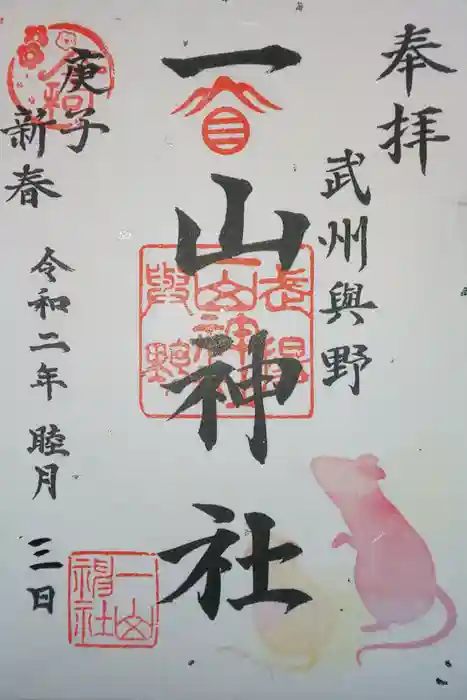 奉拝
武州與野
一山神社
庚子
新春
令和二年 睦月 三日
一山
神社